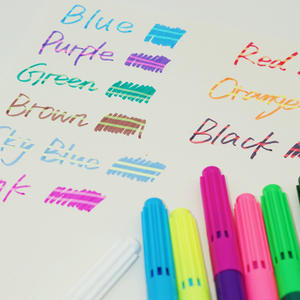 Blue
Purple
Green
Brown
Sky Blue
Pink
Red
Orange
Black